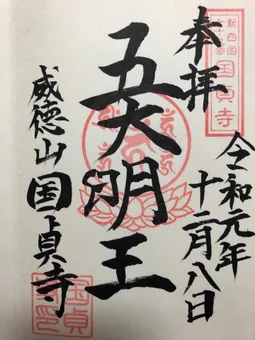 奉拝
令和元年
十二月八日
五大明王
威徳山国貞寺
新四国
国貞寺
国貞